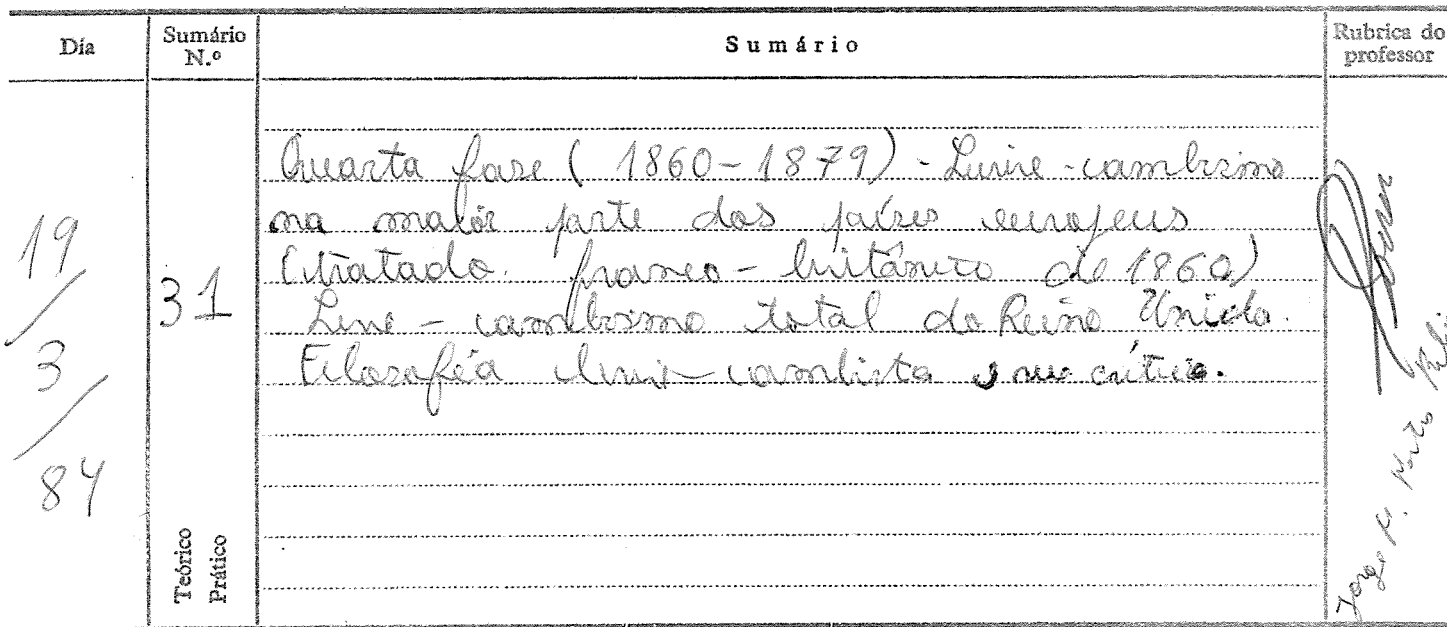 Día
Sumário N.º
Sumário
Rubrica do professor
19/3/84
31
Quarta fase (1860-1879) - Livre-cambismo
na maior parte dos países europeus
(tratado franco-britânico de 1860)
Livre-cambismo total do Reino Unido.
Filosofia livre-cambista e sua crítica.
Teórico
Prático
Jorge